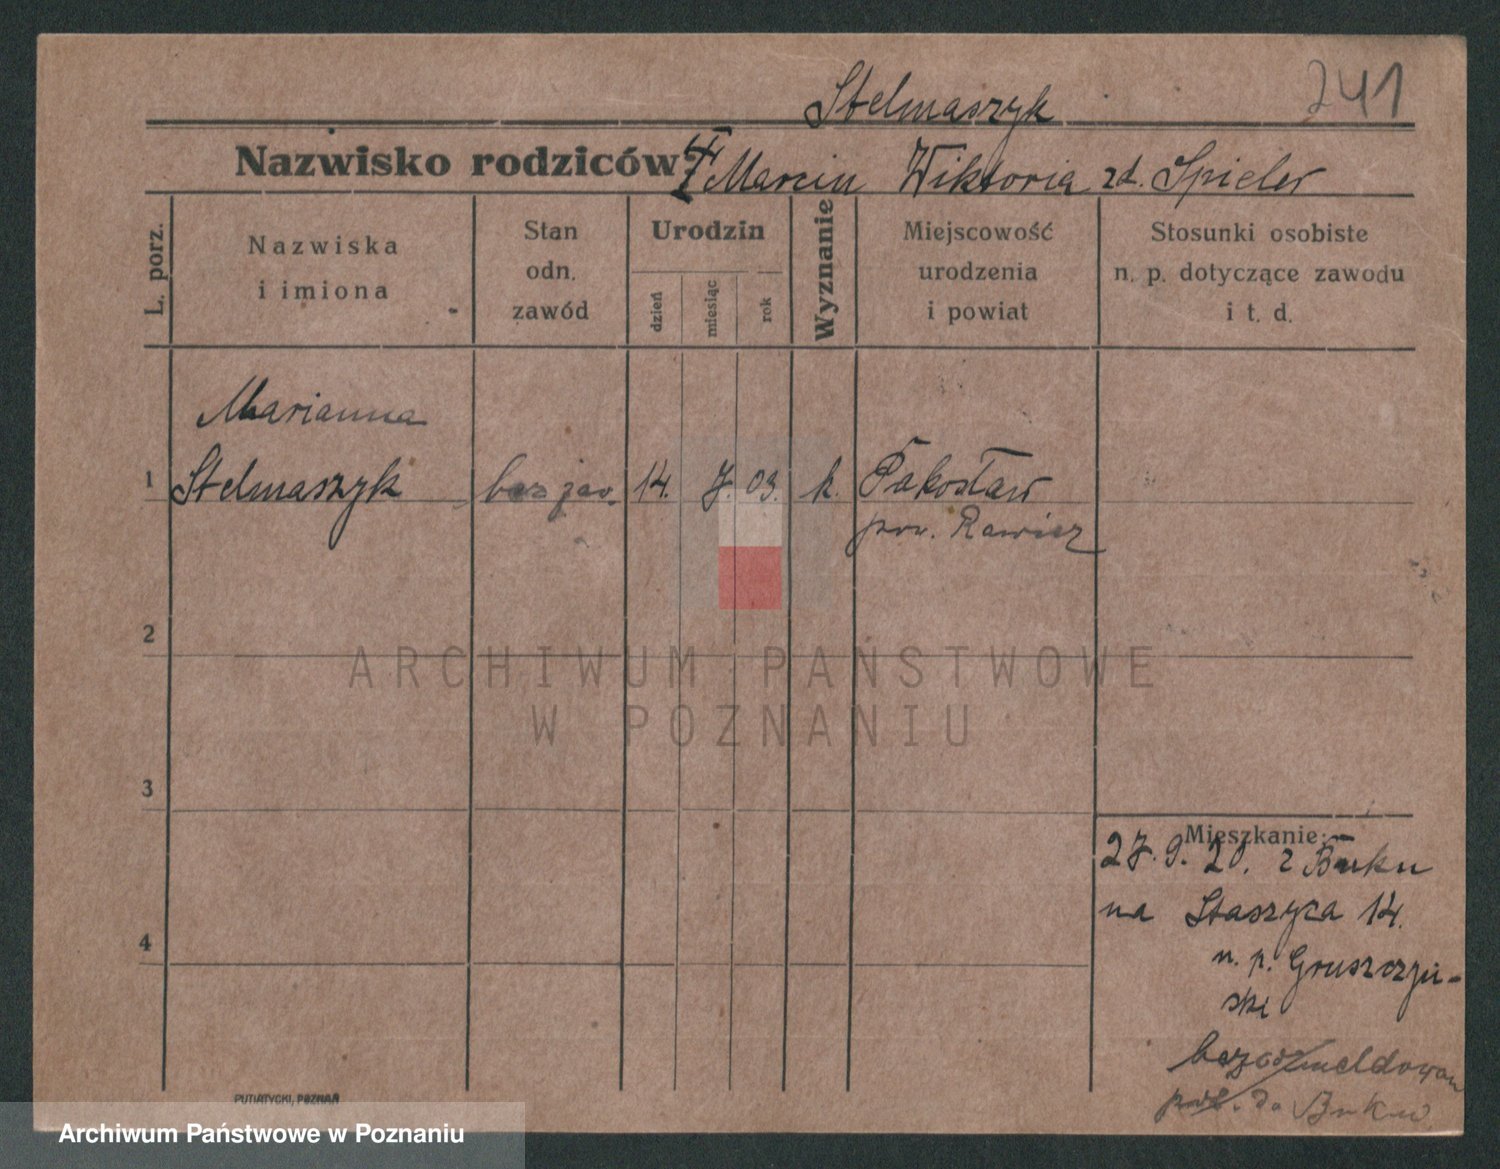 241
Stelmaszyk
Nazwisko rodziców? Marcin Wiktoria zd. Spieler
L. porz.
Nazwiska
i imiona
Stan
odn.
zawód
Urodzin
dzień
miesiąc
rok
Wyznanie
Miejscowość
urodzenia
i powiat
Stosunki osobiste
n. p. dotyczące zawodu
i t. d.
Marianna
1 Stelmaszyk bez zaw. 14. 7. 03. k. Pakosław
pow. Rawicz
2
ARCHIWUM PAŃSTWOWE
W POZNANIU
3
Mieszkanie:
27. 9. 20. z Buku
na Staszyca 14.
4
n. p. Gruszczyń-
ski
do Buku
PUTIATYCKI, POZNAŃ
Archiwum Państwowe w Poznaniu